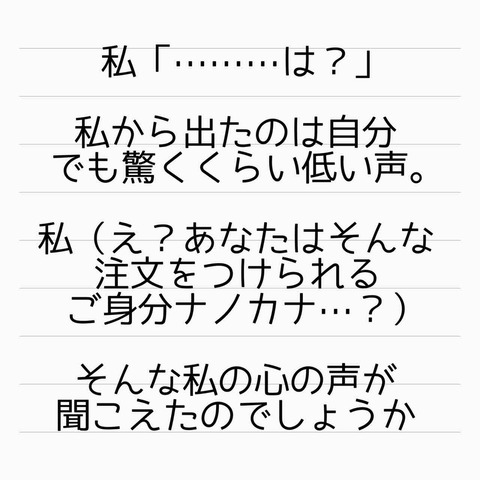 私「………は？」
私から出たのは自分
でも驚くくらい低い声。
私（え？あなたはそんな
注文をつけられる
ご身分ナノカナ…？）
そんな私の心の声が
聞こえたのでしょうか